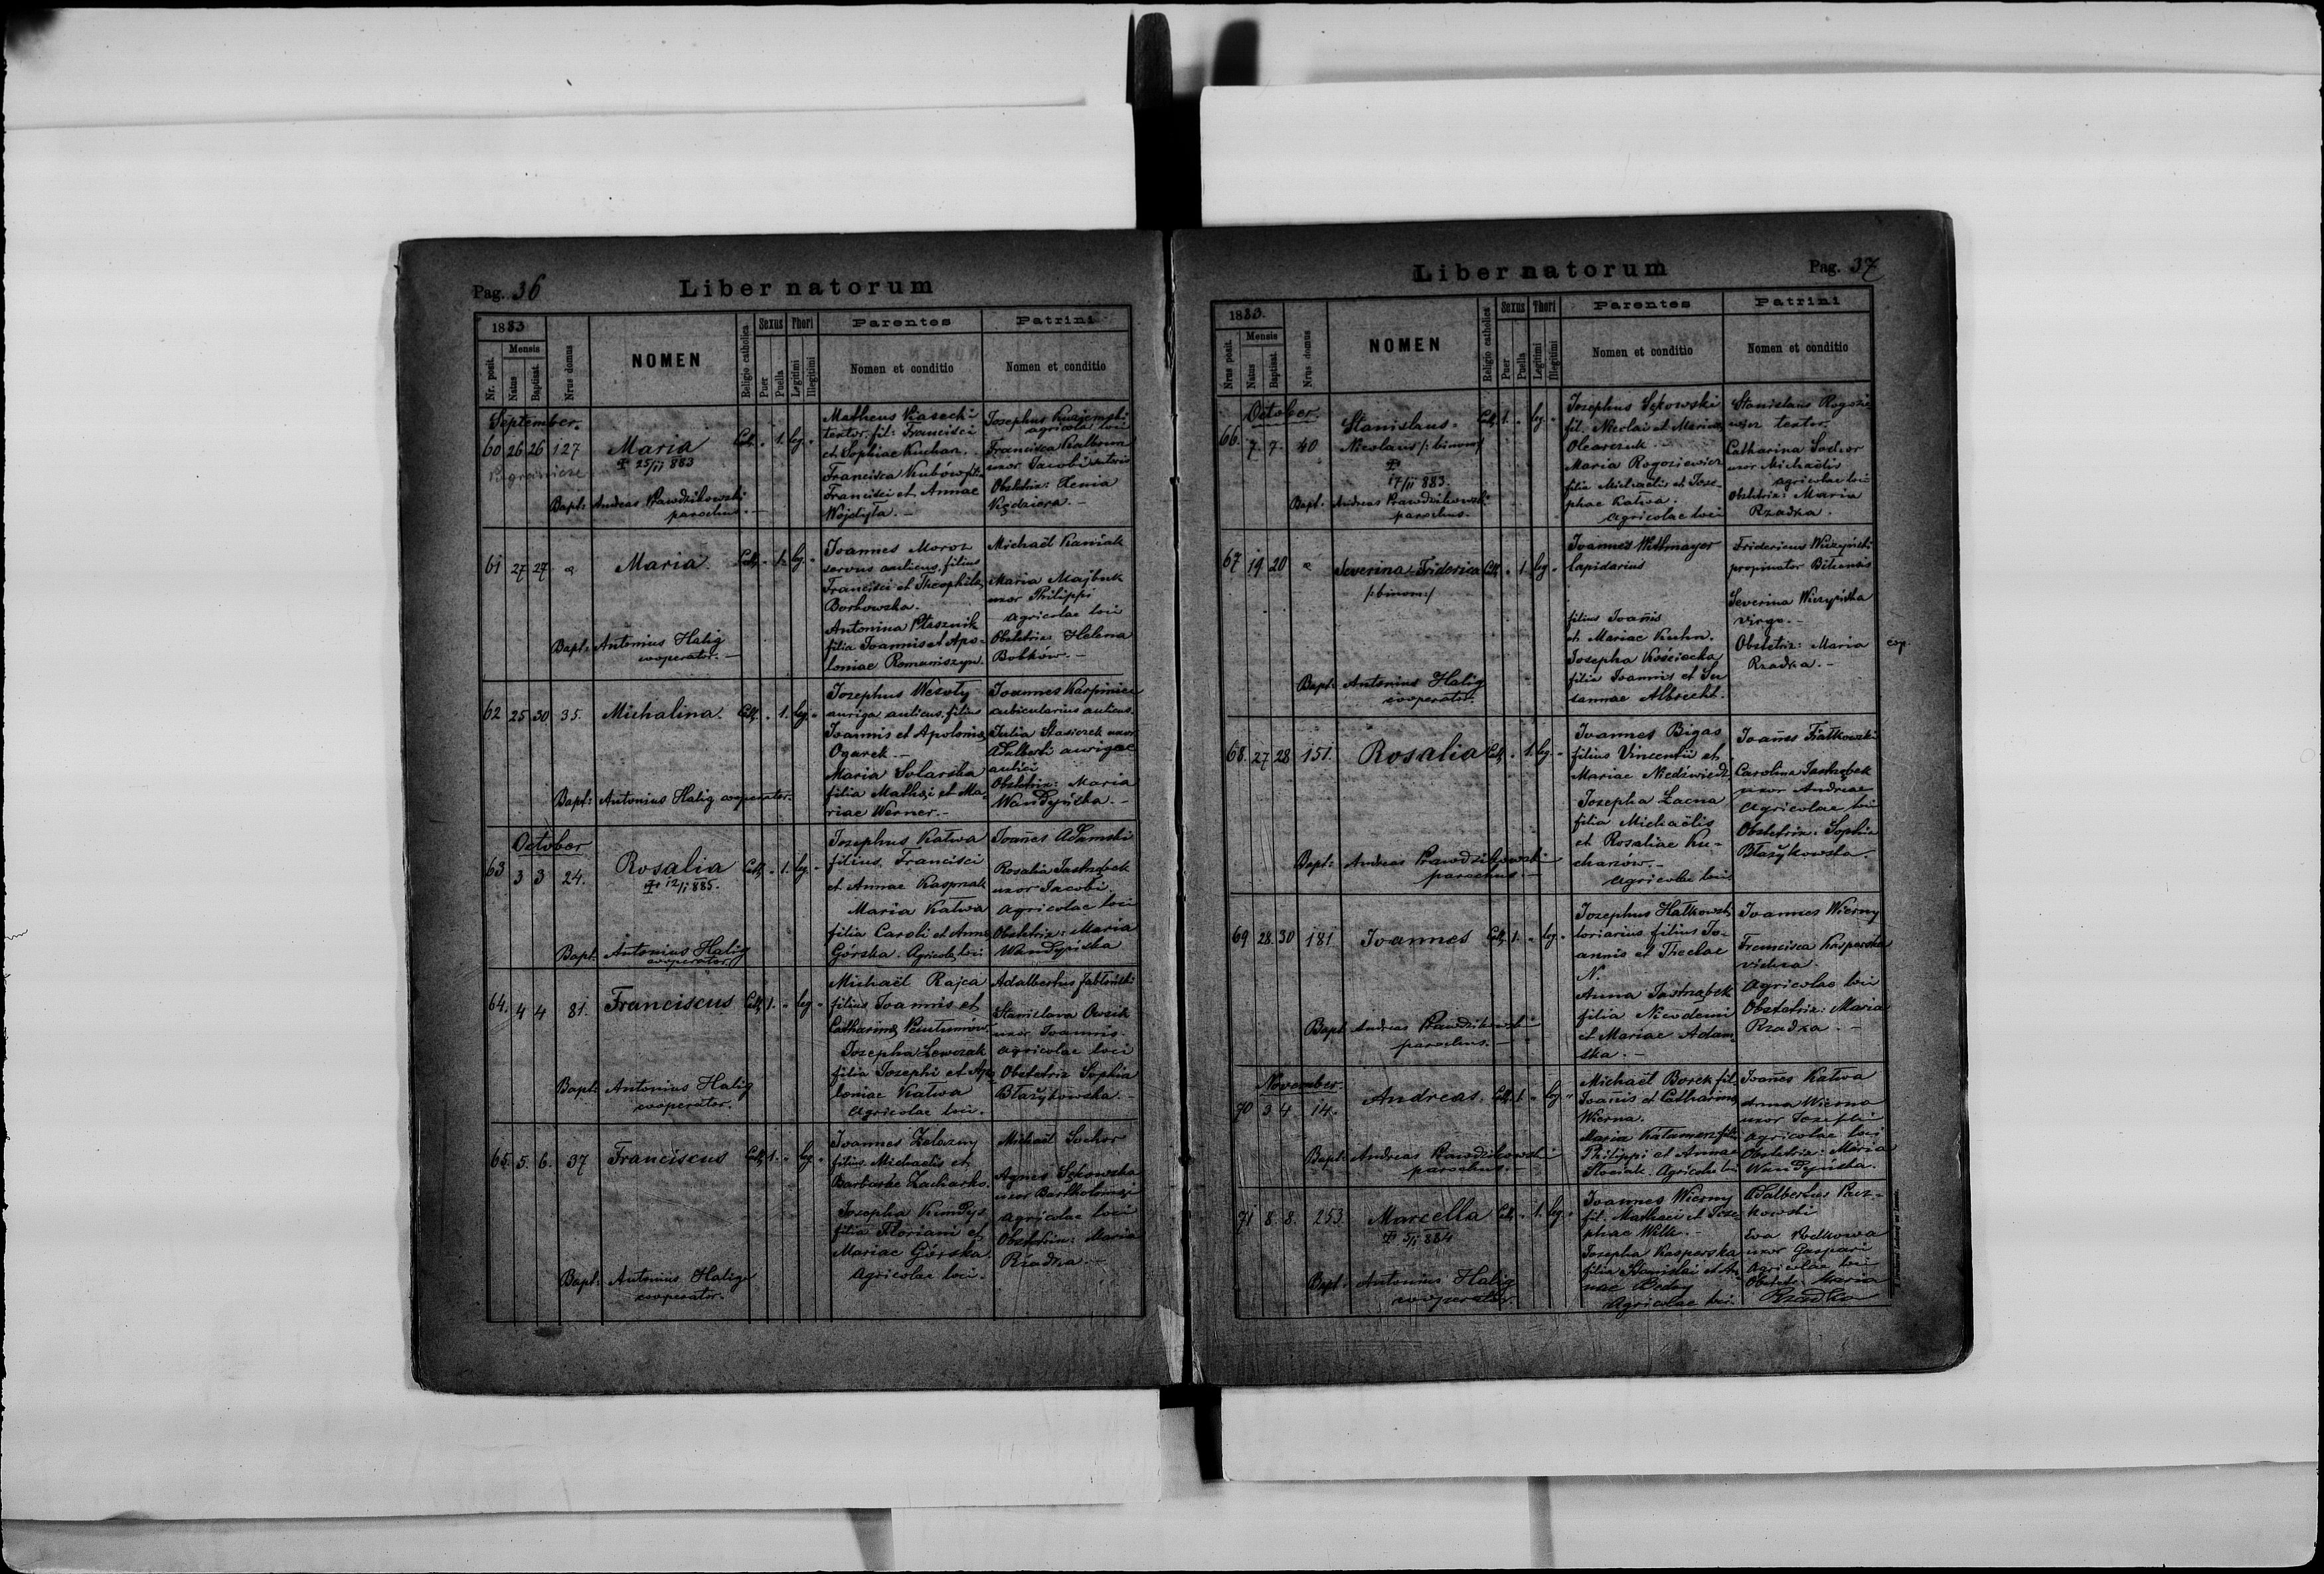 Pag. 36
Liber natorum
1883
Nr. posit.
Mensis
Natus
Baptisat.
Nrus domus
NOMEN
Religio catholica
Sexus
Puer
Puella
Thori
Legitimi
Illegitimi
Parentes
Nomen et conditio
Patrini
Nomen et conditio
September.
60 26 26 127
Maria
25/II 883
Bapt: Andreas Prawdzikowski
parochus.
Cath. " 1. leg. "
Matheus Kasech
textor, fil: Francisci
et Sophiae Kuchar.
Francisca Kubów fil.
Francisci et Annae
Wojdyła. -
Josephus
agricolae loci
Francisca
uxor Jacobi
Obstetrix: Xenia
Kędziora. -
61 27 27 a
Maria.
Bapt: Antonius Halig
cooperator. -
Cath. " 1. leg. "
Joannes Moroz
servus aulicus, filius
Francisci et Theophila
Borkowska.
Antonina Ptasznik
filia Joannis et Apo-
loniae Romaniszyn.
Michaël Kaniak
Maria Majbuk
uxor Philippi
agricolae loci
Obstetrix Helena
Bobków. -
62 25 30 35.
Michalina.
Bapt: Antonius Halig cooperator.
Cath. " 1. leg. "
Josephus Wesoły
auriga aulicus, filius
Joannis et Apolonia
Ogarek. -
Maria Solarska
filia Mathei et Ma-
riae Werner. -
Joannes Karpiniec
cubicularius aulicus.
Julia Stasiczek uxor
Adalberti aurigae
aulici
Obstetrix: Maria
Wandyńska. -
October
63 3 3 24.
Rosalia
12/I 885.
Bapt. Antonius Halig
cooperator
Cath. " 1. leg. "
Josephus Katwa
filius Francisci
et Annae Kasprzak
Maria Katwa
filia Caroli et Anna
Górska. Agricolae loci
Joanes Adamski
Rosalia Jastrzębek
uxor Jacobi.
agricolae loci
Obstetrix: Maria
Wandyńska
64. 4 4 81.
Franciscus
Bapt: Antonius Halig
cooperator.
Cath. 1. " leg. "
Michaël Rajca
filius Joannis et
Catharina
Josepha Lewczak
filia Josephi et Apo-
loniae Katwa
agricolae loci.
Adalbertus Jabłoński
Stanislava Owsik
uxor Joannis.
agricolae loci
Obstetrix Sophia
Błażykowska. -
65. 5. 6. 37
Franciscus
Bapt: Antonius Halig
cooperator.
Cath. 1. " leg. "
Joannes Zelazny
filius Michaelis et
Barbarae Zacharko.
Josepha Kundys
filia Floriani et
Mariae Górska.
Agricolae loci.
Michaël Sochor
Agnes Sękowska
uxor Bartholomaei
agricolae loci
Obstetrix: Maria
Rzadka. -
Liber natorum
Pag. 37
1883.
Nrus posit.
Mensis
Natus
Baptisat.
Nrus domus
NOMEN
Religio catholica
Sexus
Puer
Puella
Thori
Legitimi
Illegitimi
Parentes
Nomen et conditio
Patrini
Nomen et conditio
October.
66. 7 7. 40
Stanislaus.
Nicolaus /: binom:/
17/II 883.
Bapt. Andreas Prawdzikowski
parochus.
Cath. 1. " leg. "
Josephus Sękowski
fil. Nicolai et Mariae
Olearczuk.
Maria Rogoziewicz
filia Michaelis et Jose-
phae Katwa.
agricolae loci
Stanislaus Rogozie-
wicz textor.
Catharina Sochor
uxor Michaëlis
agricolae loci
Obstetrix: Maria
Rzadka.
67 19 20 a
Severina-Friderica
/:binom:/
Bapt: Antonius Halig
cooperator.
Cath. " 1 leg. "
Joannes Withmayer
lapidarius
filius Joañis
et Mariae Kuhn.
Josepha Kościacka
filia Joannis et Su
sannae Albrecht.
Fridericus Wiszyński
propinator
Severina Wiszyńska
virgo. -
Obstetrix: Maria
Rzadka. -
68. 27 28 151.
Rosalia
Bapt: Andreas Prawdzikowski
parochus. -
Cath. " 1. leg. "
Joannes Bigas
filius Vincentii et
Mariae Niedźwiedź
Josepha Łacna
filia Michaëlis
et Rosaliae Ku-
charzów. -
agricolae loci
Joañes Fiałkowski
Carolina Jastrzębek
uxor Andreae
Agricolae loci
Obstetrix: Sophia
Błażykowska.
69 28. 30 181
Joannes
Bapt: Andreas Prawdzikowski
parochus. -
Cath. 1. " leg. "
Josephus Hałkowski
loriarius filius Jo-
annis et Theclae
N.
Anna Jastrzębek
filia Nicodemi
et Mariae Adam-
ska. -
Joannes Wierny
Francisca Kasperska
vidua.
agricolae loci
Obstetrix: Maria
Rzadka. -
November.
70 3 4 14.
Andreas.
Bapt: Andreas Prawdzikowski
parochus. -
Cath. 1. " leg. "
Michaël Borek fil.
Joañis et Catharina
Wierna.
Maria Katamarz filia
Philippi et Annae
Agricolae loci
Joañes Katwa
Anna Wierna
uxor Josephi
agricolae loci
Obstetrix: Maria
Wandyńska.
71 8. 8. 253.
Marcella
5/I 884
Bapt. Antonius Halig
cooperator.
Cath. " 1. leg. "
Joannes Wierny
fil. Mathaei et Jose-
phae Wilk. -
Josepha Kasperska
filia Stanislai et An-
nae
Agricolae loci.
Adalbertus Pacz-
kowski
Eva
uxor Gaspari
Agricolae loci
Obstetr. Maria
Rzadka